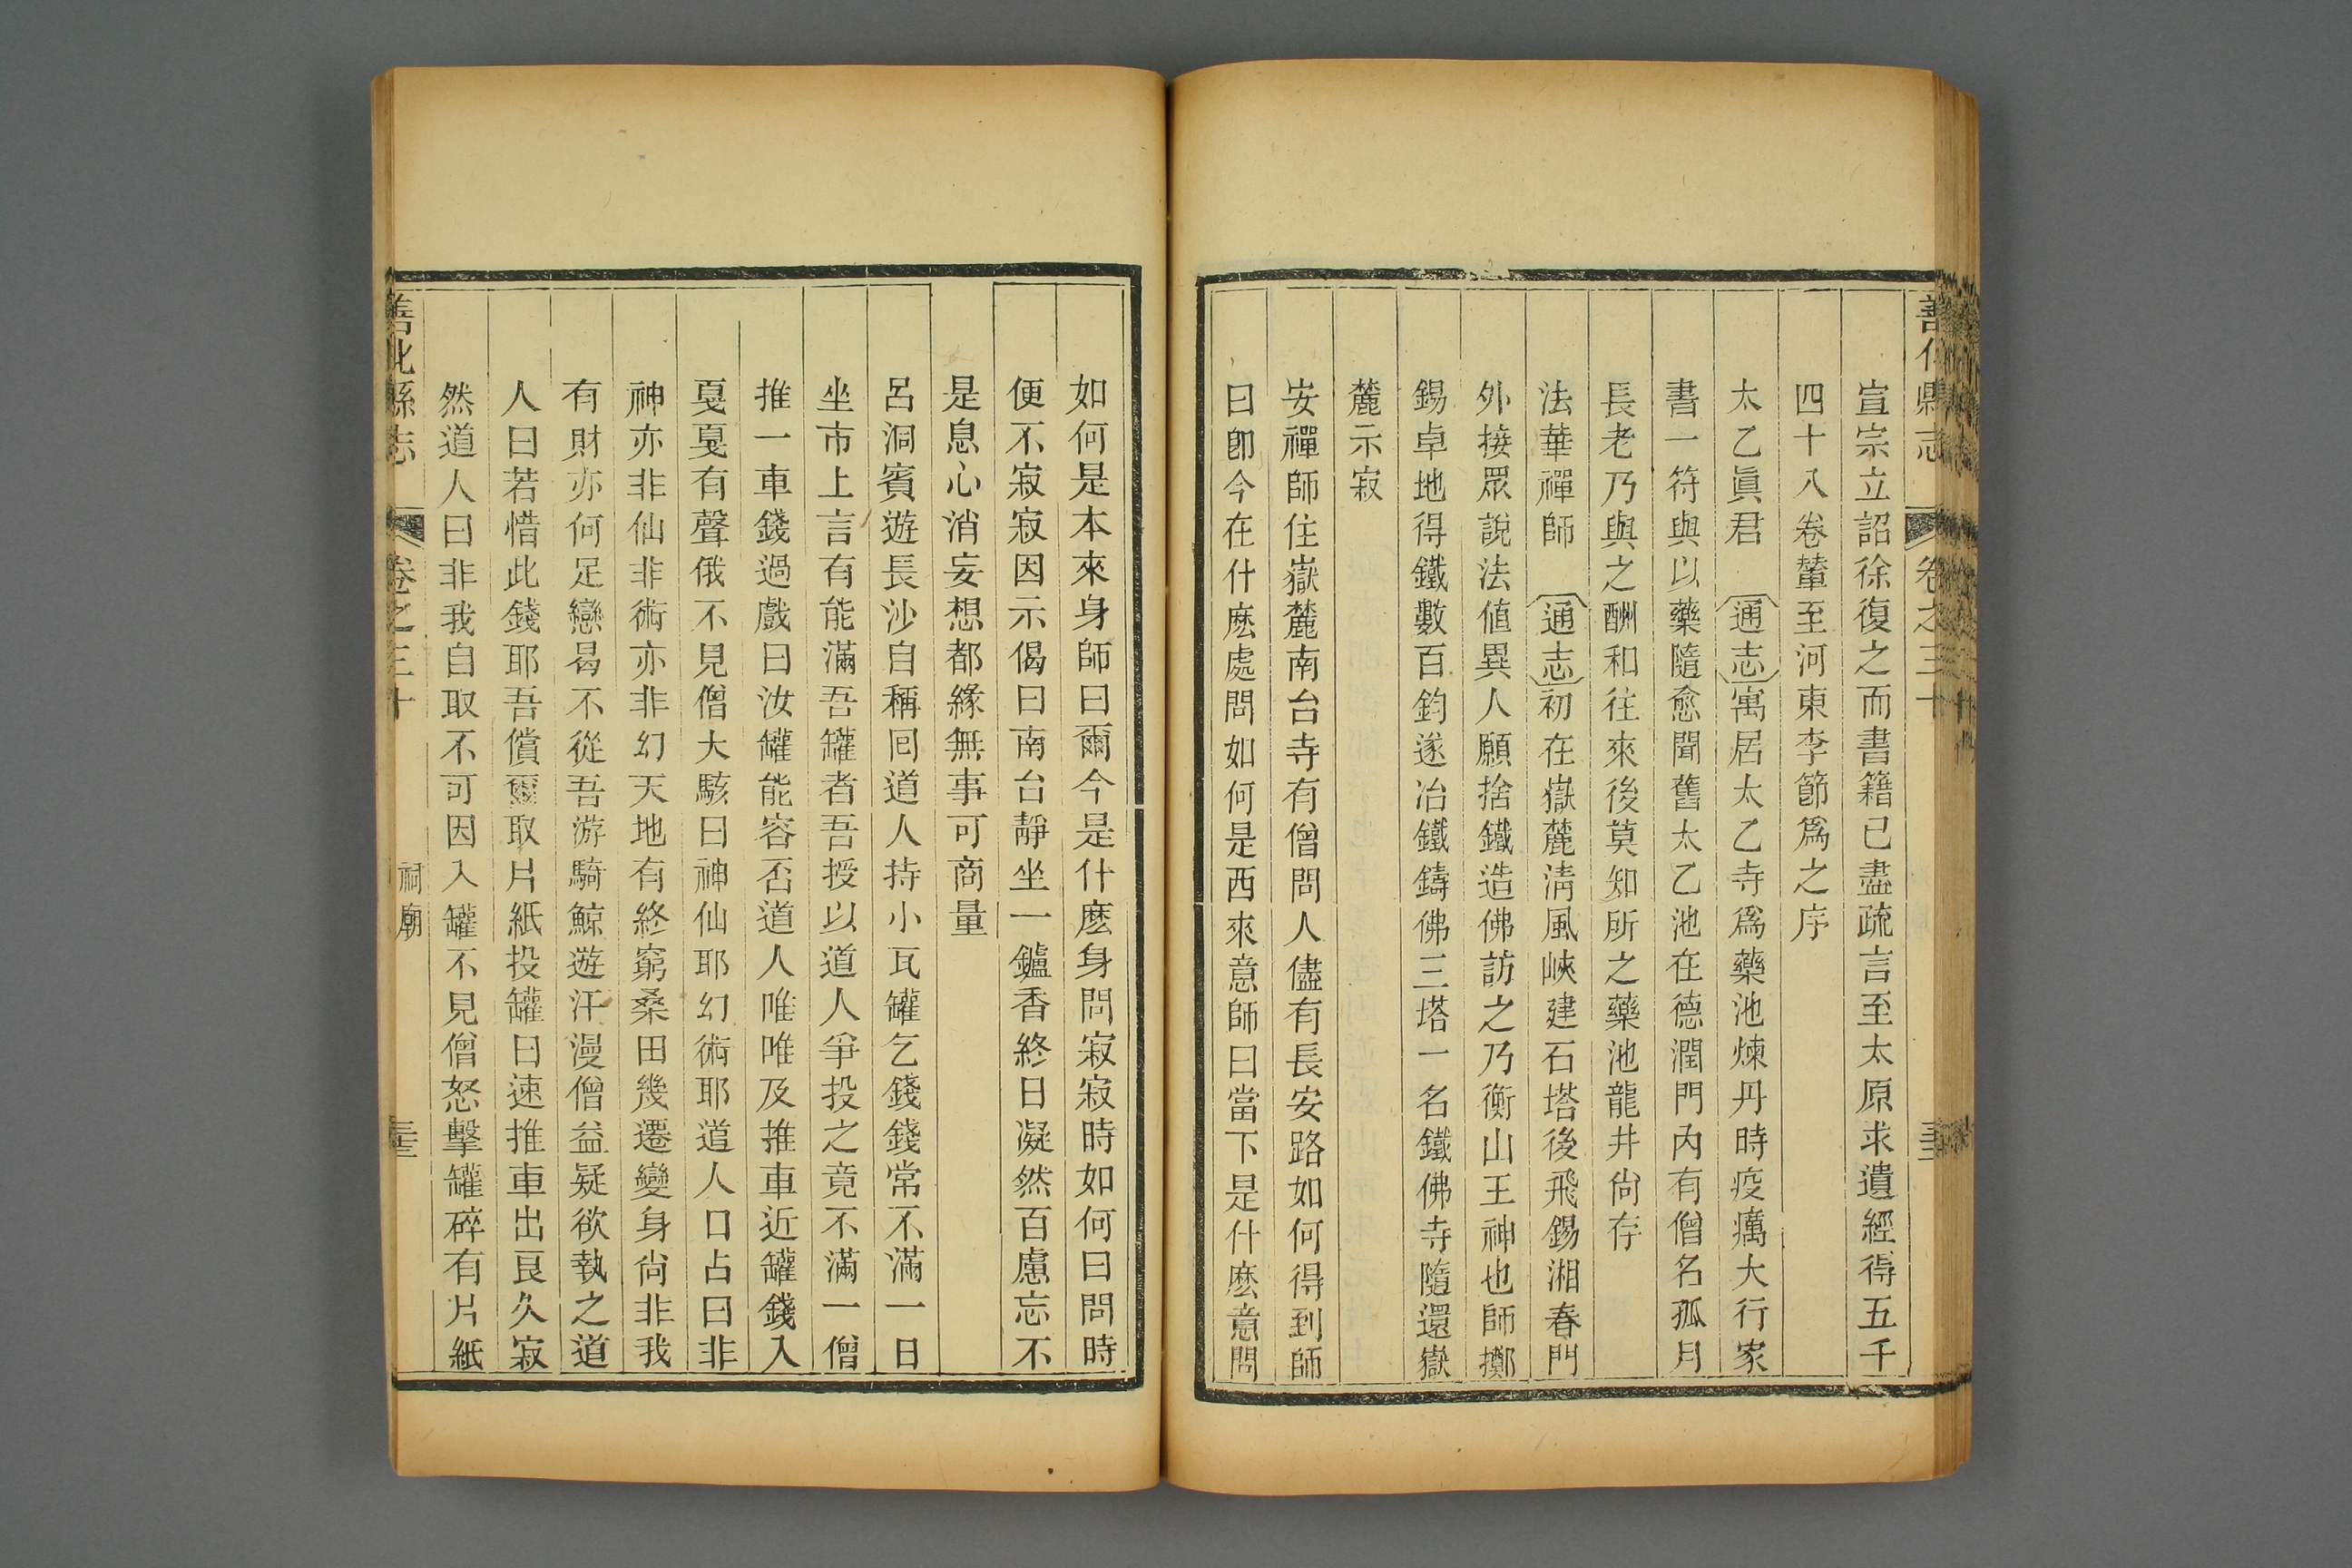 善化縣志
卷之三十
宣宗立詔徐復之而書籍已盡疏言至太原求遺經得五千
四十八卷輦至河東李節爲之序
太乙眞君
通志
寓居太乙寺爲藥池煉丹時疫癘大行家
書一符與以藥隨愈聞舊太乙池在德潤門內有僧名孤月
長老乃與之酬和往來後莫知所之藥池龍井尙存
法華禪師
通志
初在嶽麓淸風峽建石塔後飛錫湘春門
外接眾說法値異人願捨鐵造佛訪之乃衡山王神也師擲
錫卓地得鐵數百鈞遂冶鐵鑄佛三塔一名鐵佛寺隨還嶽
麓示寂
安禪師住嶽麓南台寺有僧問人儘有長安路如何得到師
曰卽今在什麽處問如何是西來意師曰當下是什麽意問
如何是本來身師曰爾今是什麽身問寂寂時如何曰問時
便不寂寂因示偈曰南台靜坐一鑪香終日凝然百慮忘不
是息心消妄想都緣無事可商量
呂洞賓遊長沙自稱回道人持小瓦罐乞錢錢常不滿一日
坐市上言有能滿吾罐者吾授以道人爭投之竟不滿一僧
推一車錢過戲曰汝罐能容否道人唯唯及推車近罐錢入
戛戛有聲俄不見僧大駭曰神仙耶幻術耶道人口占曰非
神亦非仙非術亦非幻天地有終窮桑田幾遷變身尙非我
有財亦何足戀曷不從吾游騎鯨遊汗漫僧益疑欲執之道
人曰若惜此錢耶吾償爾取片紙投罐曰速推車出良久寂
然道人曰非我自取不可因入罐不見僧怒擊罐碎有片紙
善化縣志
卷之三十
祠廟